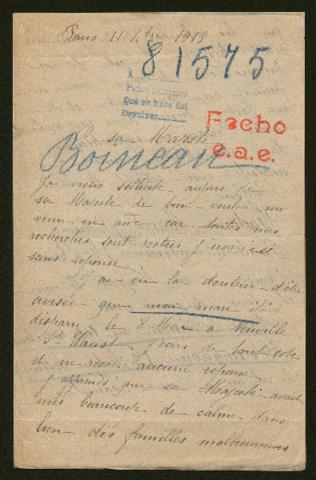 Paris 11 1915
81575
Que se hace del
Devolver
Fecho
e.a.e.
A sa Majesté
Boineau
Je viens solliciter auprès de
sa Majesté de bien vouloir me
venir en aide car toutes mes
recherches sont restées jusqu'ici
sans réponse
J'ai eu la douleur d'être
avisée que mon mari était
disparu le 8 Mai à Neuville
St Vaast j'écris de tout coté
et ne reçois aucune réponse
J'apprends que sa Majesté avait
mis beaucoup de calme dans
bien des familles malheureuses